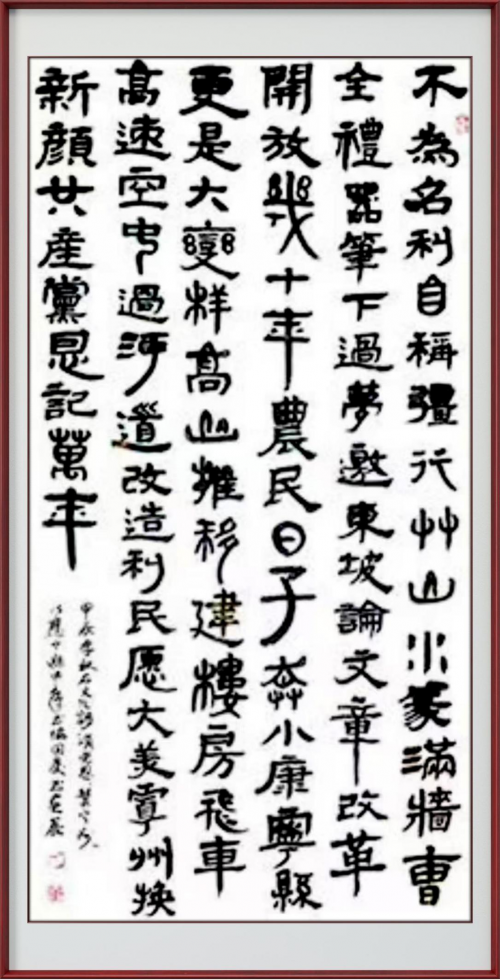 不為名利自稱彊行艸山水篆滿牆曹
全禮器筆下過夢邀東坡論文章改革
開放幾十年農民日子奔小康寧縣
更是大變样高山推移建樓房飛車
高速空中過河道改造利民愿大美寧州换
新顔共産黨恩記萬年
甲辰季秋